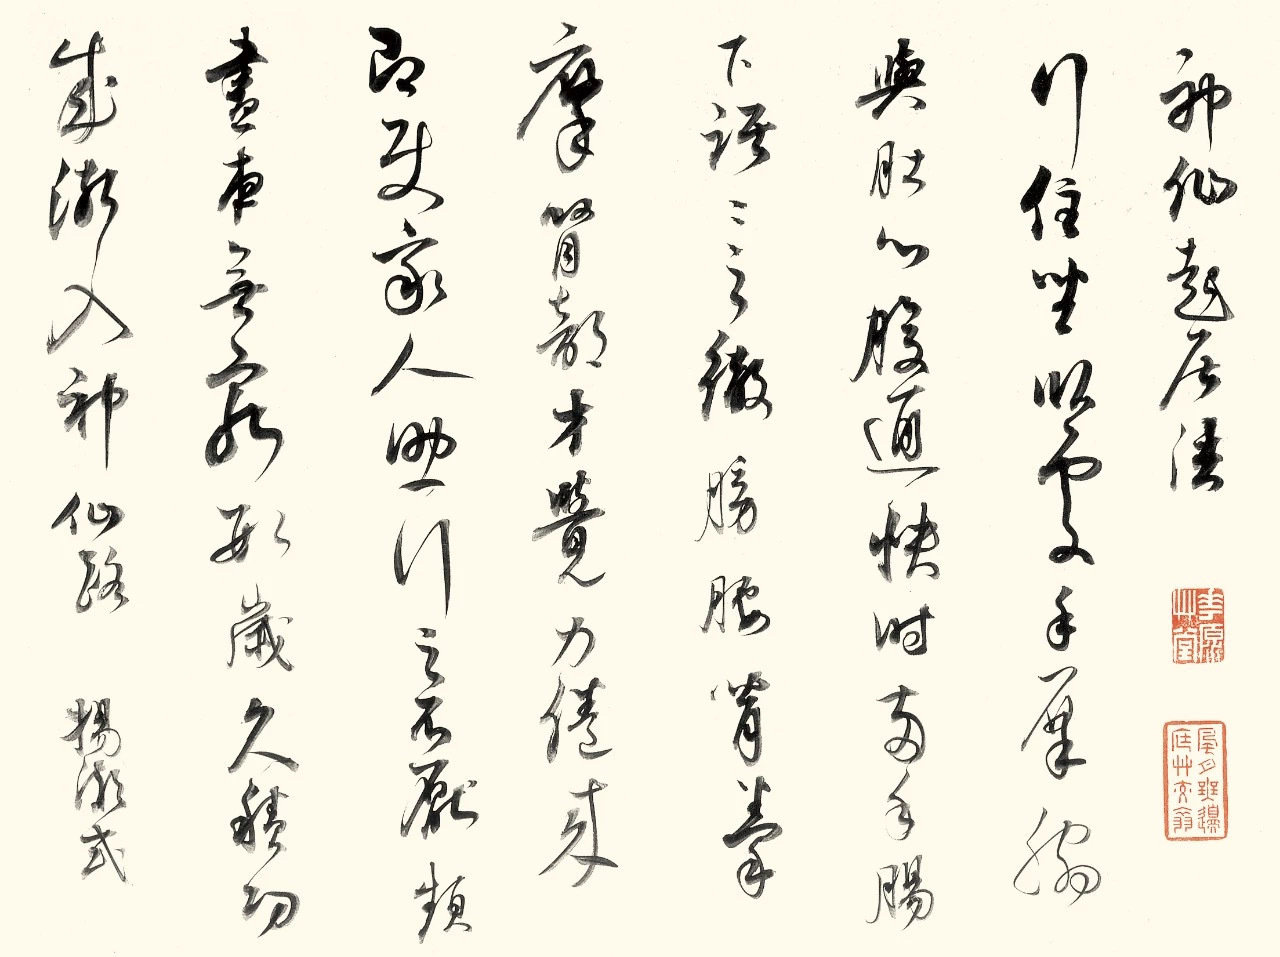 神仙起居法
行住坐臥處手摩脅
與肚心腹通快時兩手腸
下踞〻之徹膀腰背拳
摩腎部才覺力倦來
即使家人助行之不厭頻
晝夜無窮數歲久積功
成漸入神仙路 楊凝式
風月無邊
庭艸交翠